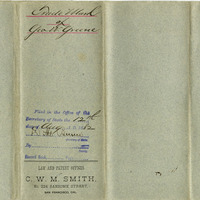 Trade Mark
of
Geo. W. Greene
Filed in the Office of the
Secretary of State the 12th
day of Aug A.D. 1882
By
Record Book
LAW AND PATENT OFFICES
C. W. M. SMITH,
STREET,
SAN FRANCISCO, CAL.